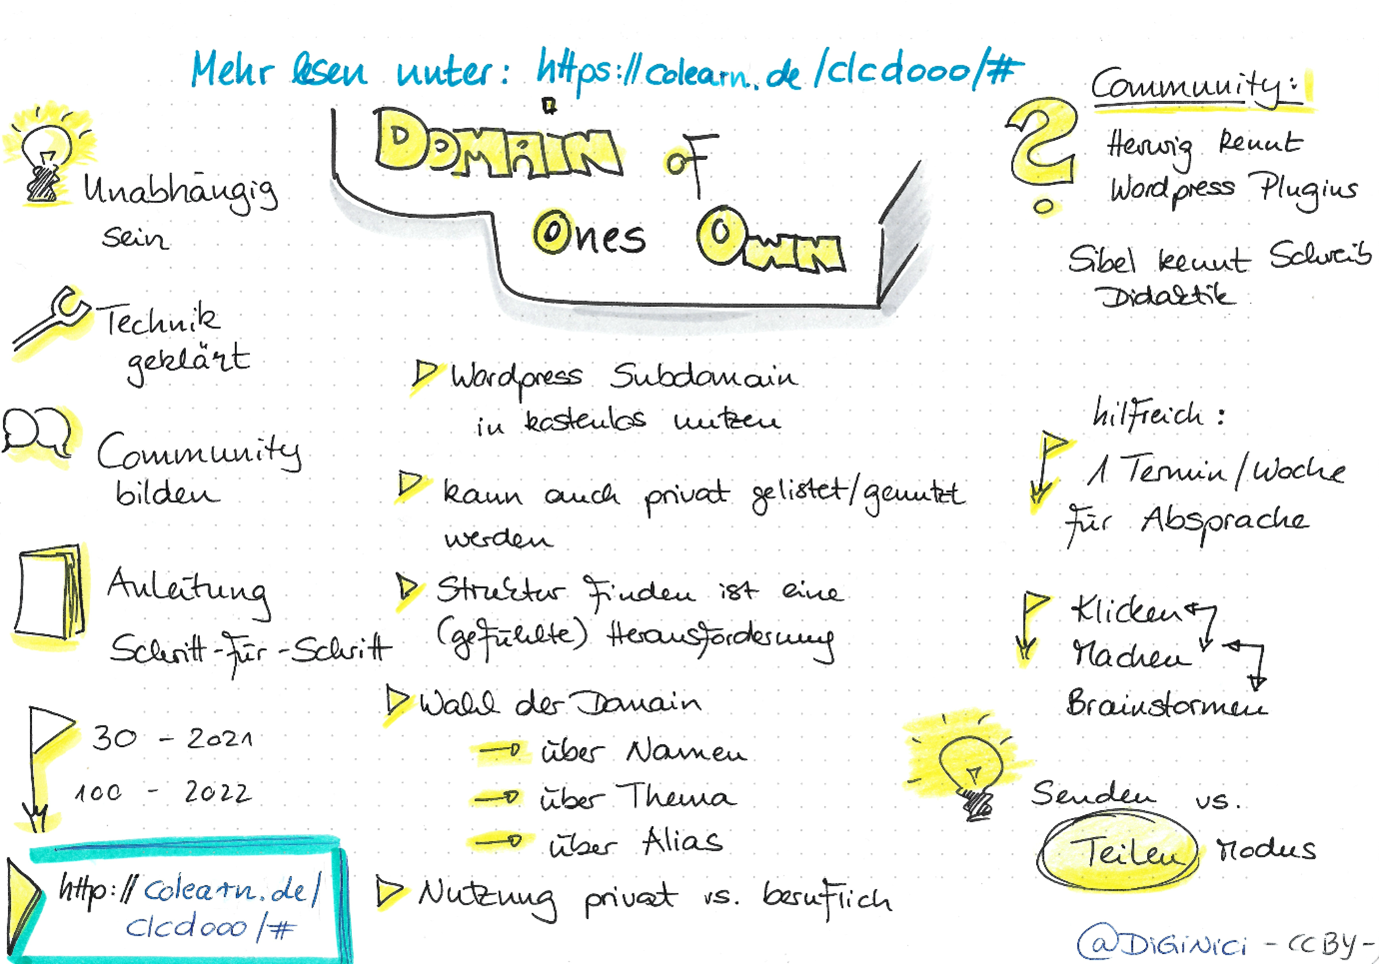 Mehr lesen unter: https://colearn.de/clcdooo/#
DOMAIN OF
ONES OWN
Unabhängig
sein
Technik
geklärt
Community
bilden
Anleitung
Schritt-für-Schritt
30 - 2021
100 - 2022
http://colearn.de/
clcdooo/#
Wordpress Subdomain
in kostenlos nutzen
kann auch privat gelistet/genutzt
werden
Struktur finden ist eine
(gefühlte) Herausforderung
Wahl der Domain
über Namen
über Thema
über Alias
Nutzung privat vs. beruflich
Community:
Herwig kennt
Wordpress Plugins
Sibel kennt Schreib
Didaktik
hilfreich:
1 Termin/Woche
für Absprache
Klicken
Machen
Brainstormen
Senden vs.
Teilen Modus
@DiGiNiCi - CC BY -